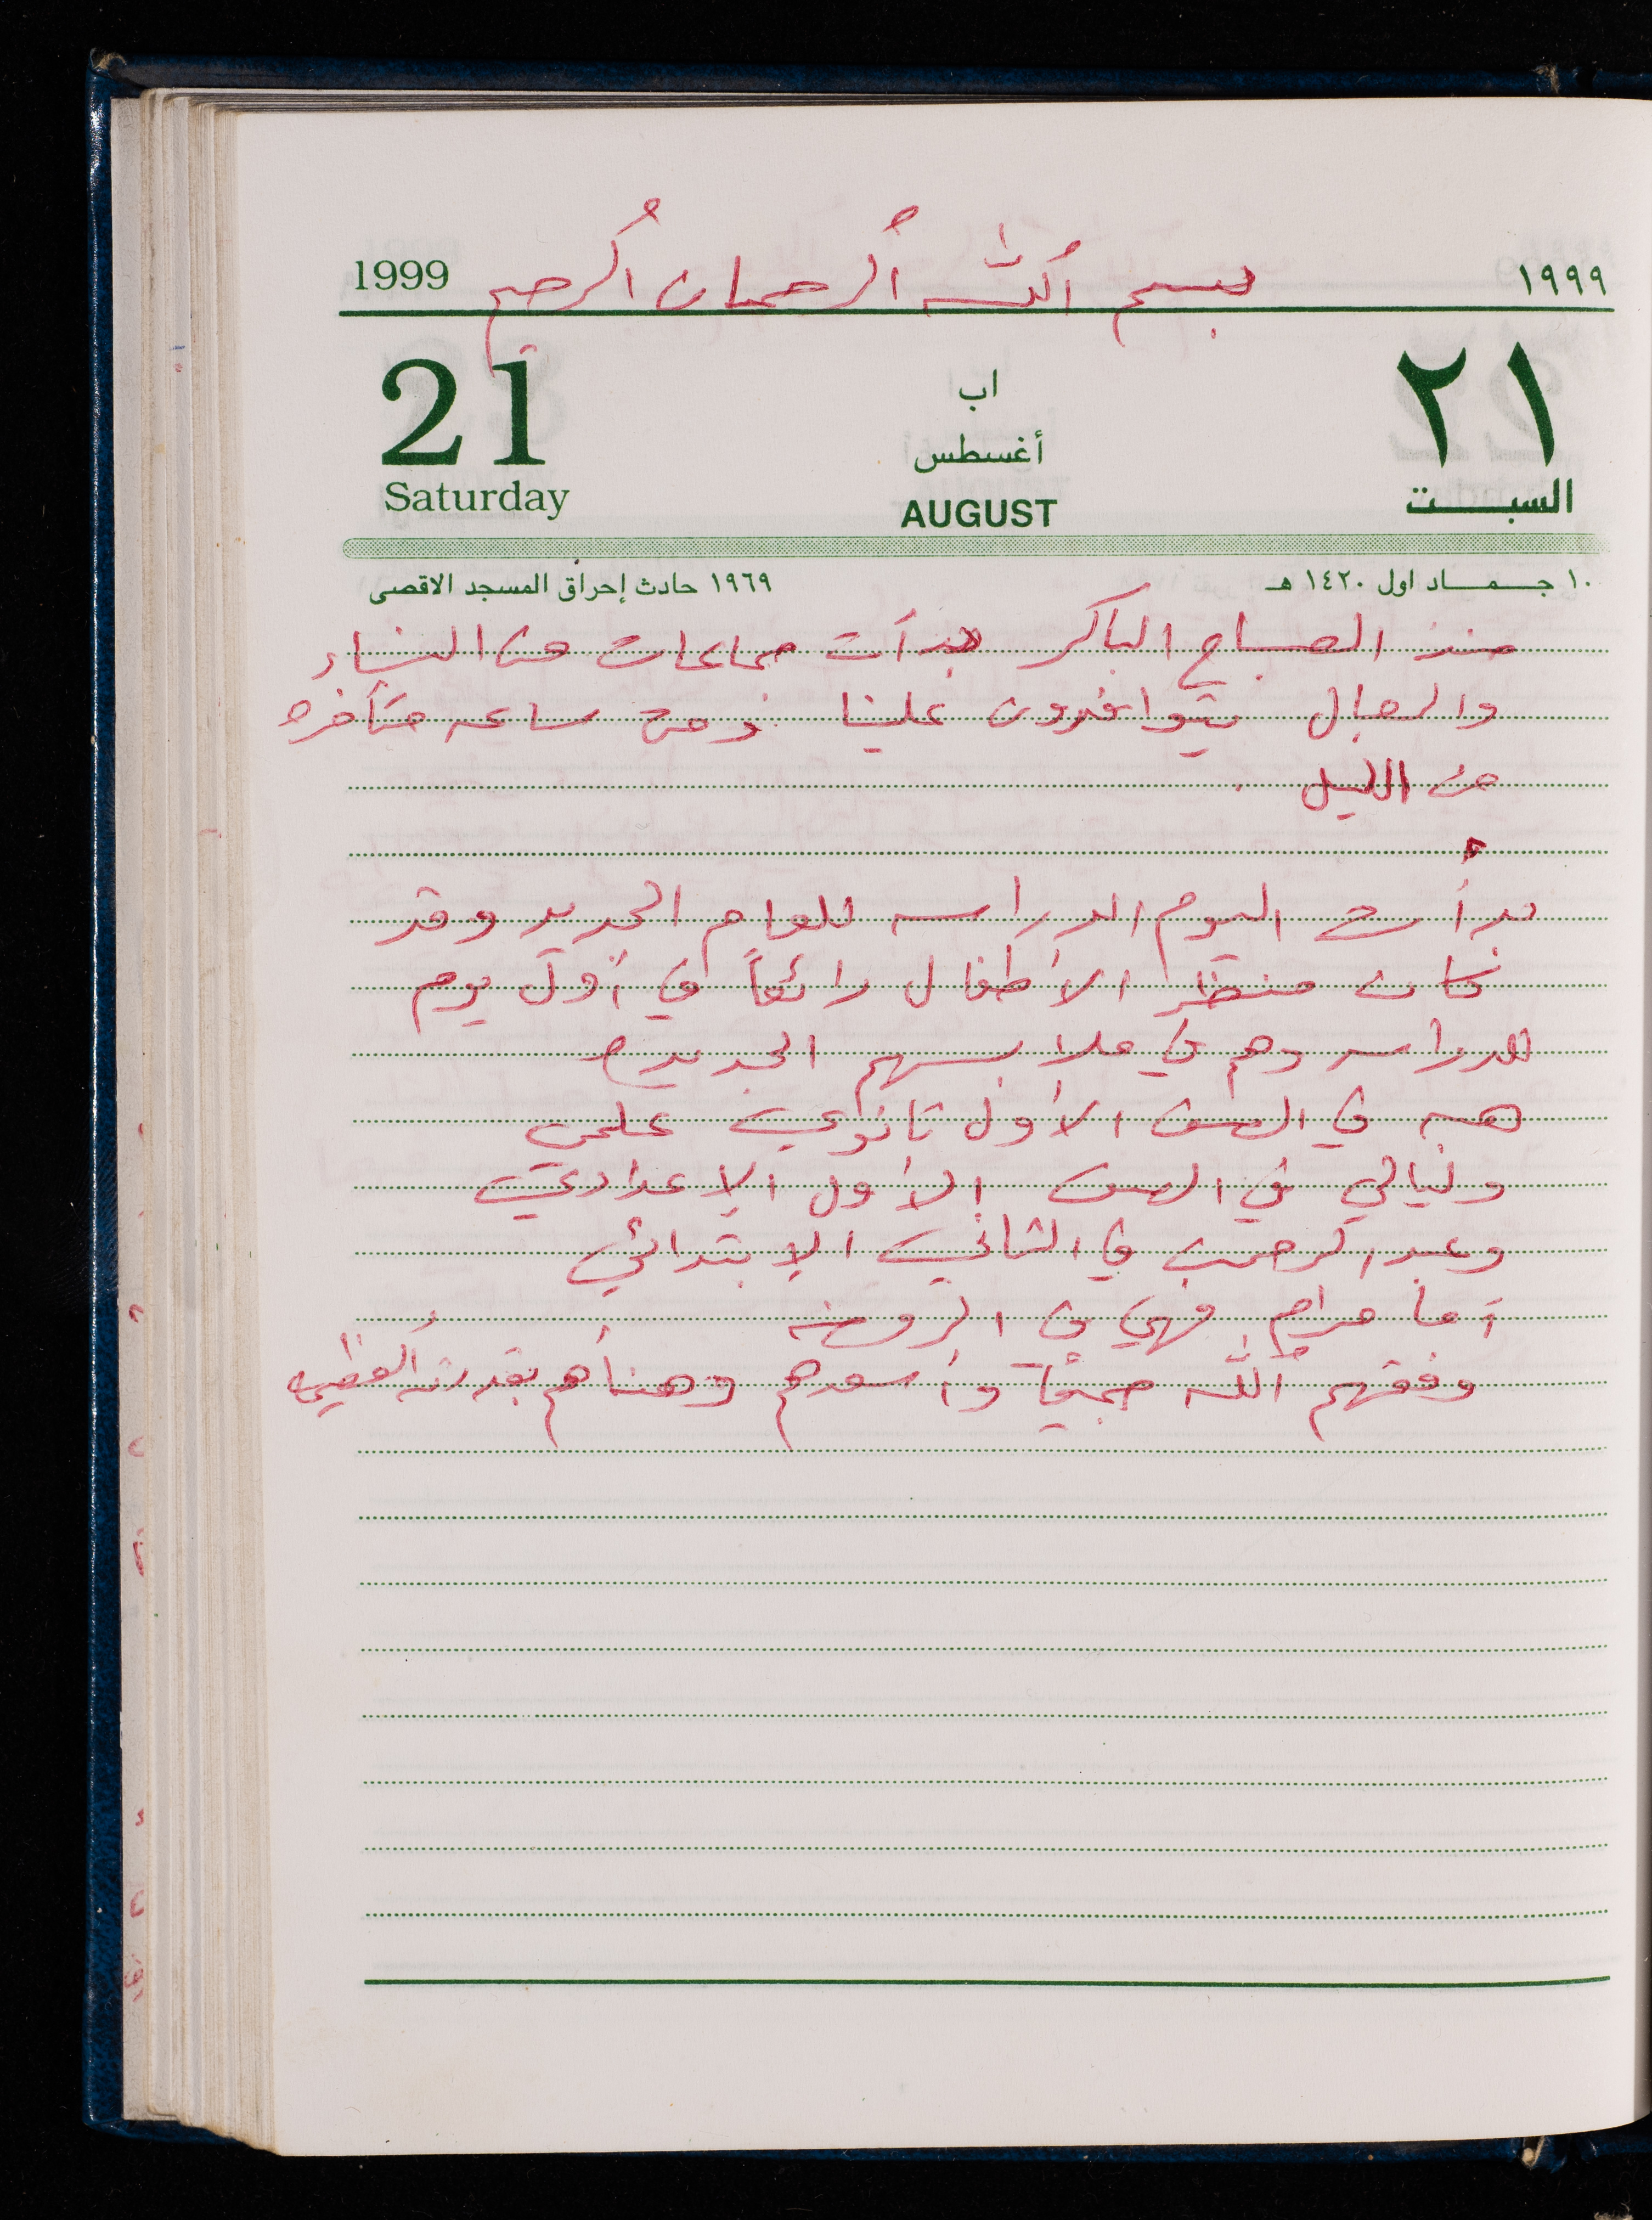 بسم الله الرحمان الرحيم
1999 ١٩٩٩
21 اب ٢١
أغسطس
Saturday AUGUST السبت
١٠ جماد اول ١٤٢٠ هـ ١٩٦٩ حادث إحراق المسجد الاقصى
منذ الصباح الباكر بدأت جماعات من النساء
والرجال يتوافدون علينا ساعه متأخره
من الليل .
بدأت اليوم الدراسه للعام الجديد وقد
كان منظر الأطفال رائعاً في أول يوم
للدراسه وهم في ملابسهم الجديده
هبه في الصف الأول ثانوي علمي
وليالي في الصف الأول الإعدادي
وعبد الرحمن في الثاني الإبتدائي
أما مرام فهي في الروضه
وفقهم الله جميعاً وأسعدهم وهنأهم بقدرته العظيمه